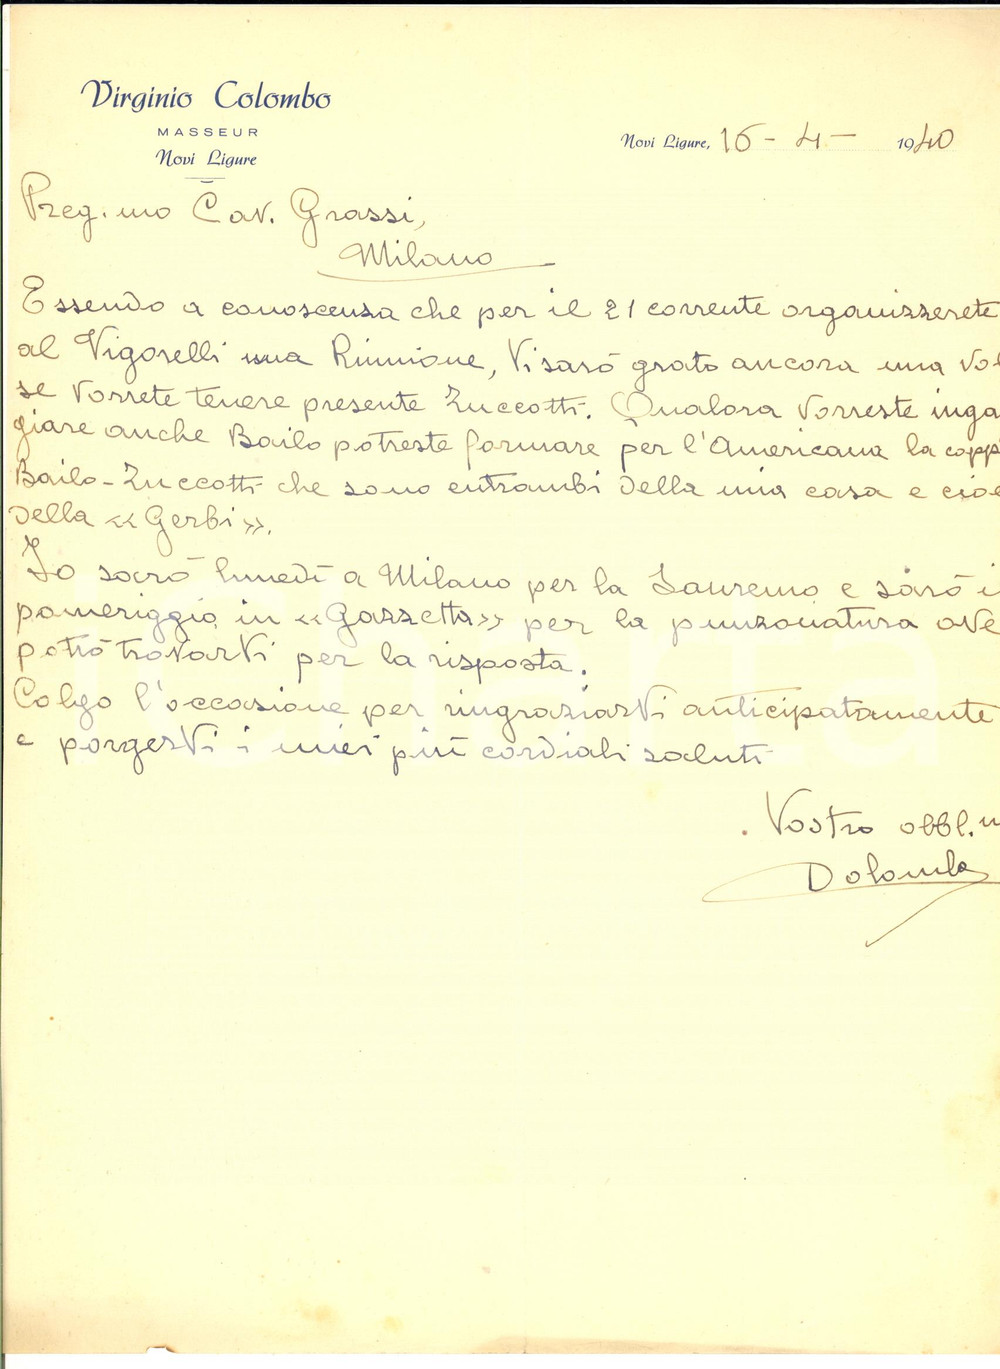 Virginio Colombo
MASSEUR
Novi Ligure
Novi Ligure, 16 - 4 - 1940
Preg.mo Cav. Grassi,
Milano
Essendo a conoscenza che per il 21 corrente organizzerete
al Vigorelli una Riunione, Vi sarò grato ancora una vol
se vorrete tenere presente Zuccotti. Qualora vorreste inga
giare anche Bailo potreste formare per l'Americana la coppi
Bailo-Zuccotti che sono entrambi della mia casa e cioè
della «Gerbi».
Io sarò lunedì a Milano per la Sanremo e sarò i
pomeriggio in «Gazzetta» per la punzonatura ove
potrò trovarVi per la risposta.
Colgo l'occasione per ringraziarVi anticipatamente
e porgerVi i miei più cordiali saluti
Vostro obbl.m
Colombo